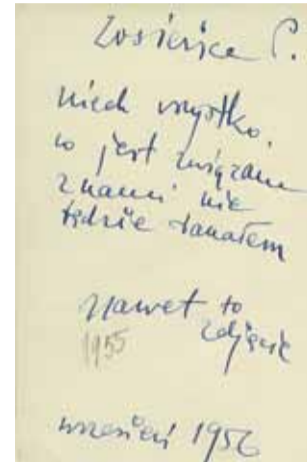 Zosieńce C.
niech wszystko,
co jest związane
z nami nie
będzie banałem
Nawet to
zdjęcie
1955
wrzesień 1956